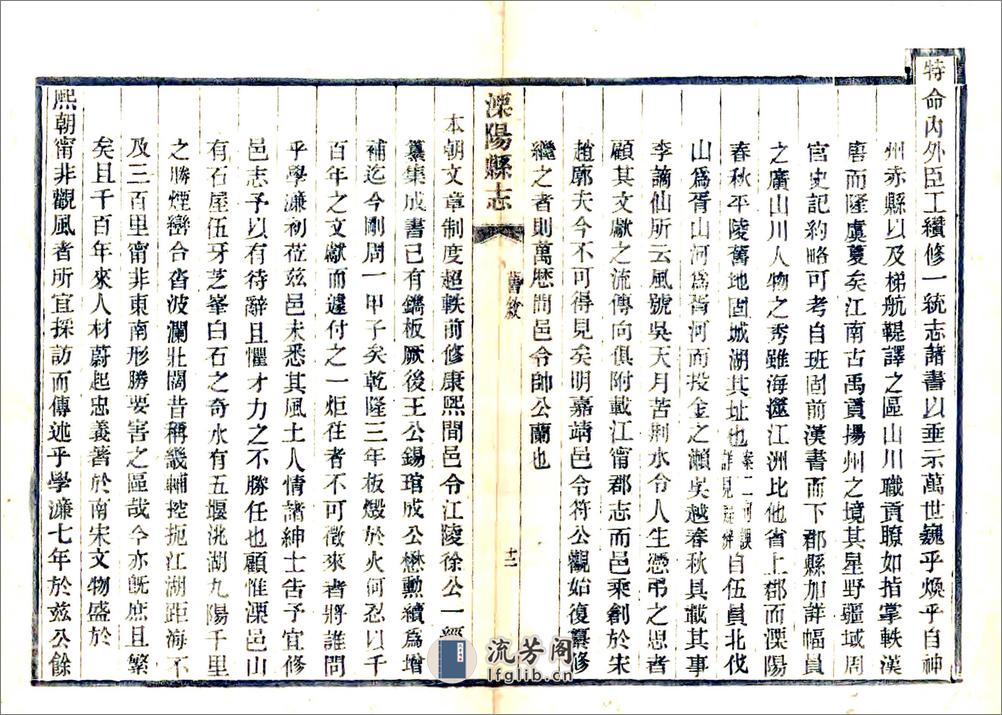 特命內外臣工纘修一統志諸書以垂示萬世巍乎煥乎自神
州赤縣以及梯航鞮譯之區山川職貢瞭如指掌軼漢
唐而隆虞夏矣江南古禹貢揚州之境其星野疆域周
官史記約略可考自班固前漢書而下郡縣加詳幅員
之廣山川人物之秀雖海澨江洲比他省上郡而溧陽
春秋平陵舊地固城湖其址也案二河誤詳見辯自伍員北伐
山爲胥山河爲胥河而投金之瀨吳越春秋具載其事
李謫仙所云風號吳天月苦荆水令人生憑弔之思者
顧其文獻之流傳向俱附載江甯郡志而邑乘創於宋
趙廓夫今不可得見矣明嘉靖邑令符公觀始復纂修
繼之者則萬歷間邑令帥公蘭也
溧陽縣志
舊敘
十二
本朝文章制度超軼前修康熙間邑令江陵徐公一經
纂集成書已有鐫板厥後王公錫琯成公懋勳續爲增
補迄今剛周一甲子矣乾隆三年板燬於火何忍以千
百年之文獻而遽付之一炬往者不可徵來者將誰問
乎學濂初莅茲邑未悉其風土人情諸紳士告予宜修
邑志予以有待辭且懼才力之不勝任也顧惟溧邑山
有石屋伍牙芝峯白石之奇水有五堰洮湖九陽千里
之勝煙巒合沓波瀾壯闊昔稱畿輔控扼江湖距海不
及三百里甯非東南形勝要害之區哉今亦既庶且繁
矣且千百年來人材蔚起忠義著於南宋文物盛於
熙朝甯非觀風者所宜採訪而傳述乎學濂七年於茲公餘
流芳阁
lfglib.cn